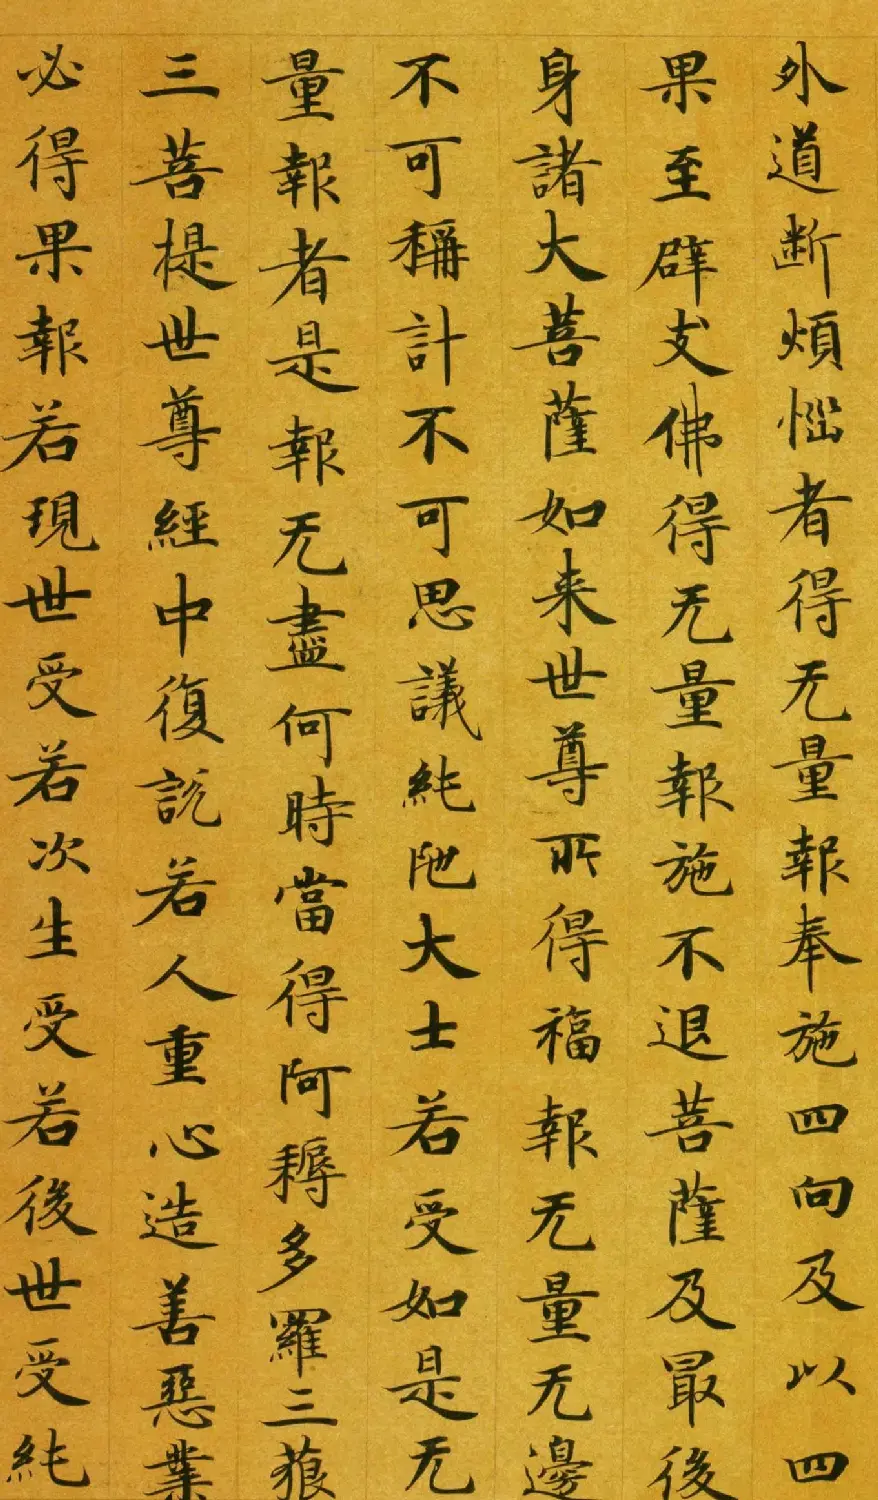 外道断煩惱者得无量報奉施四向及以四
果至辟支佛得无量報施不退菩薩及最後
身諸大菩薩如来世尊所得福報无量无邊
不可稱計不可思議純陁大士若受如是无
量報者是報无盡何時當得阿耨多羅三藐
三菩提世尊經中復説若人重心造善惡業
必得果報若現世受若次生受若後世受純